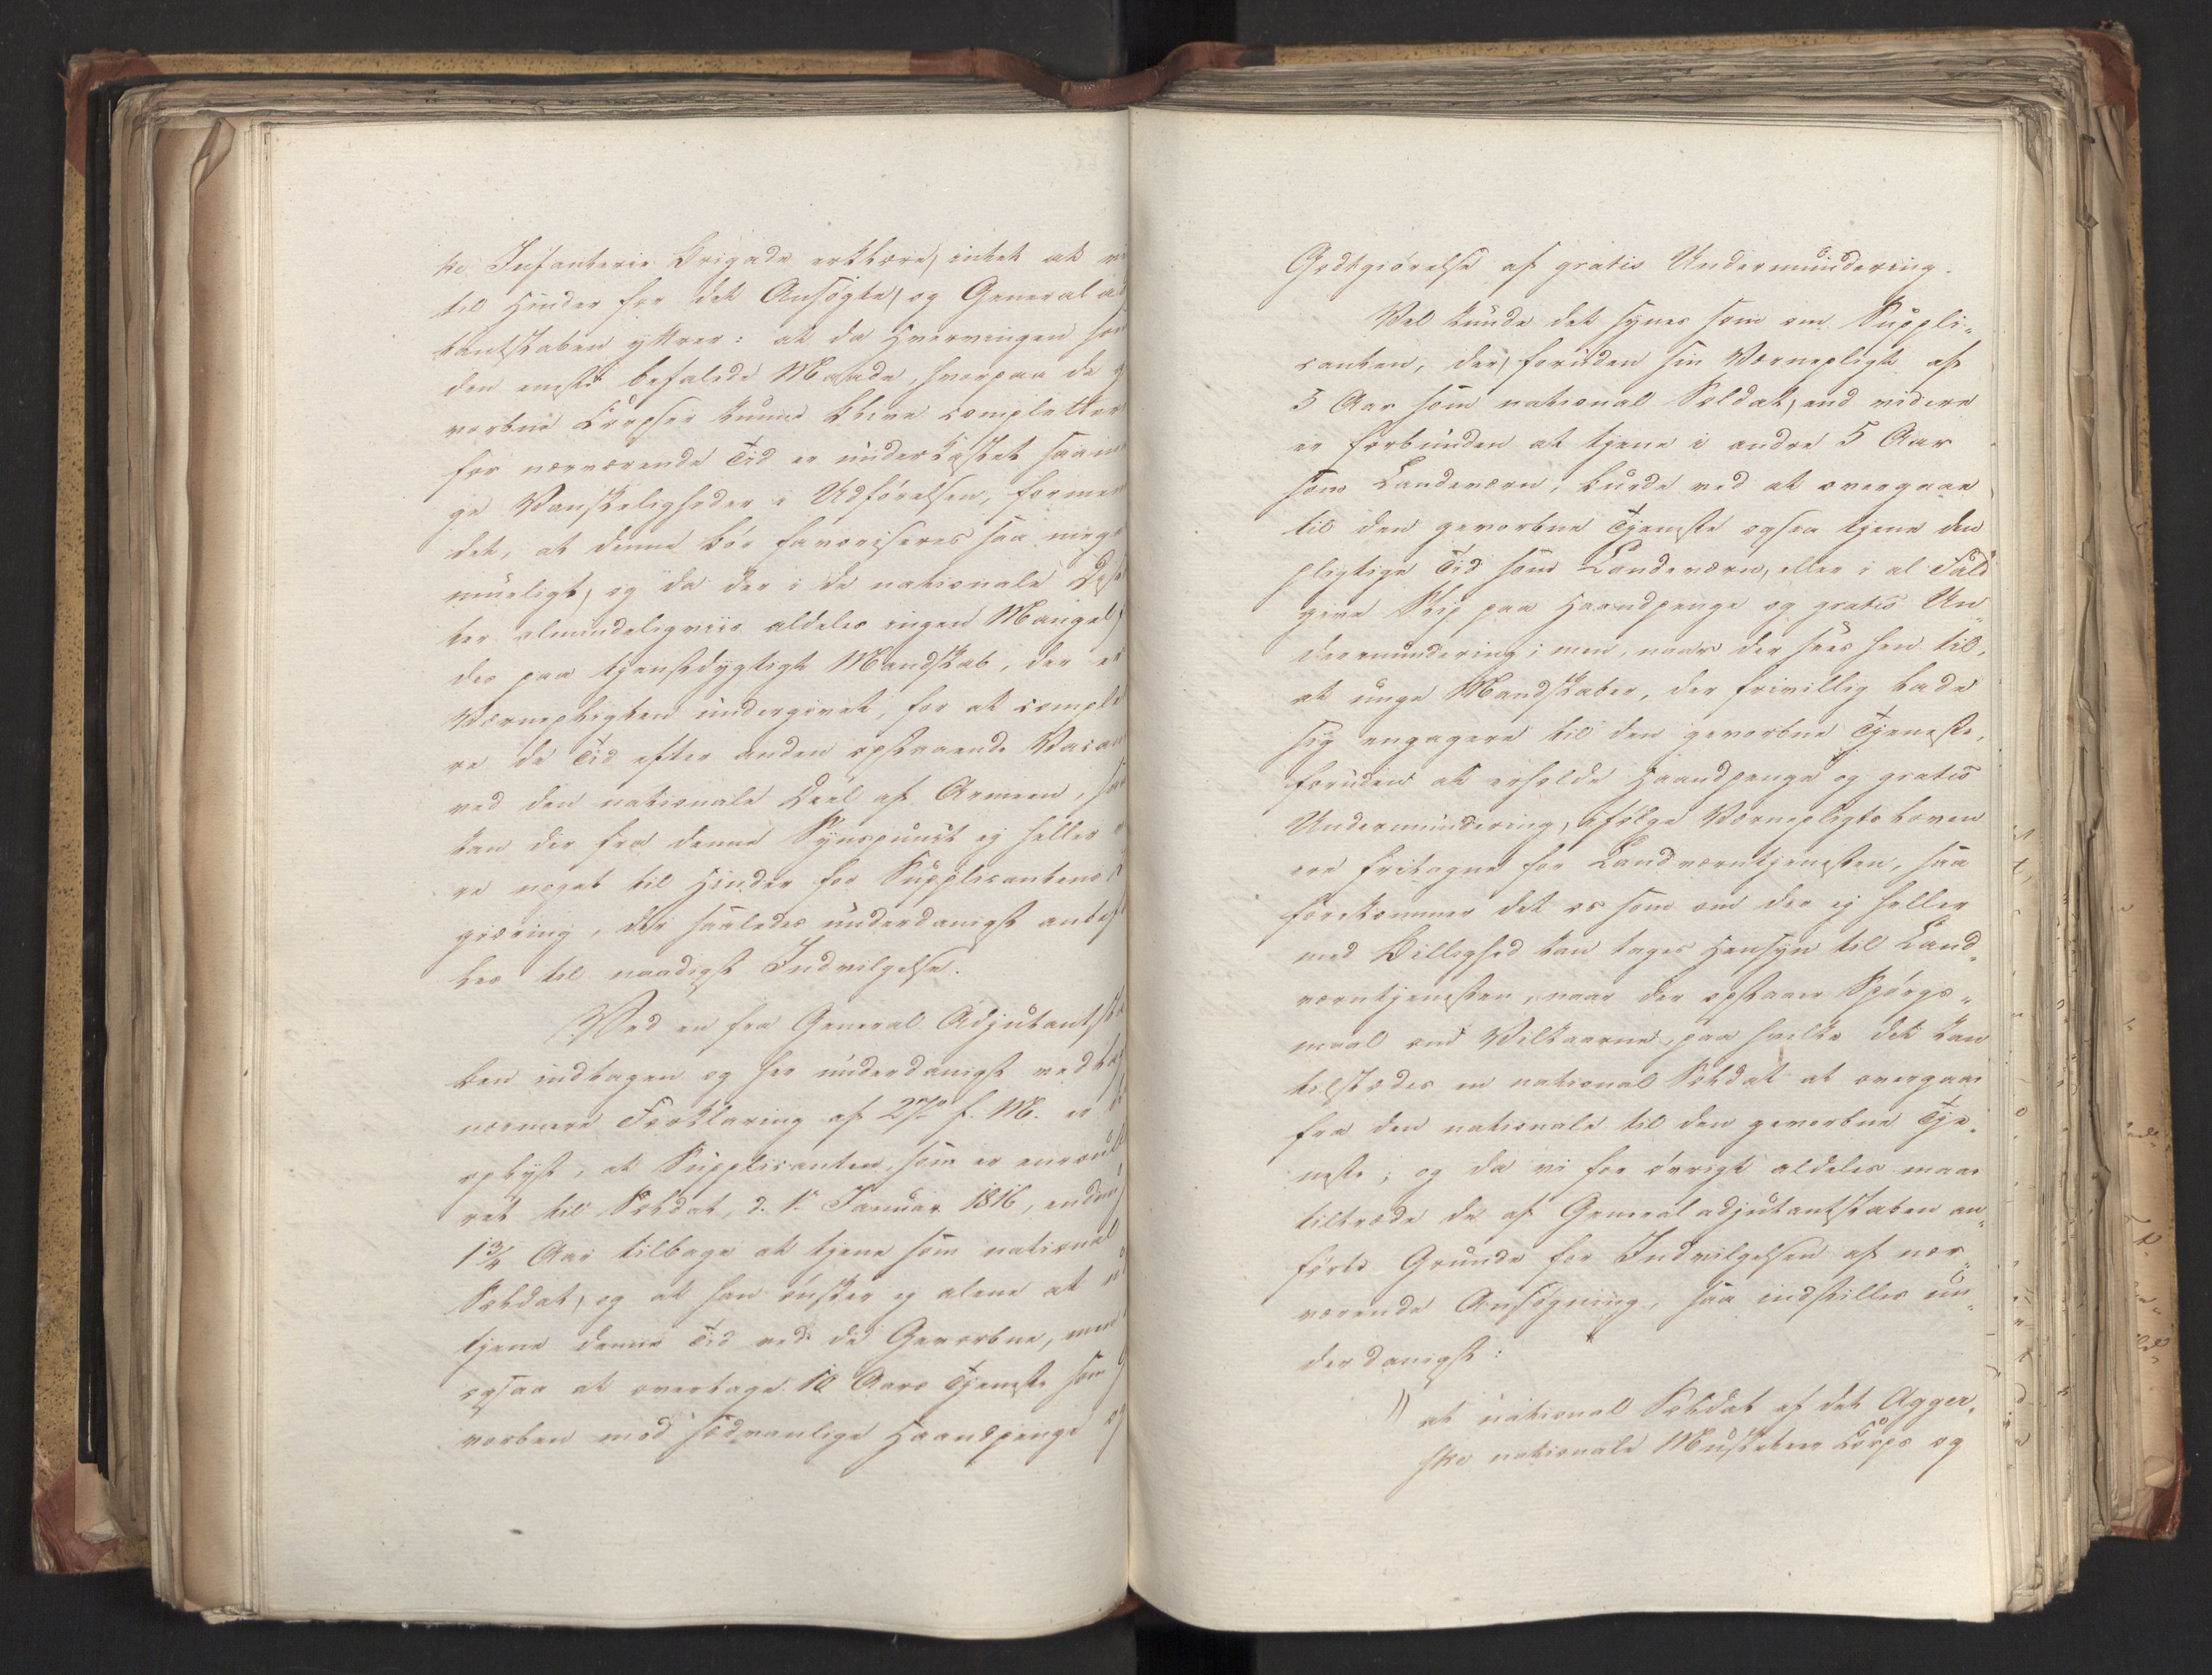 ke Infanterie Brigade erklære, intet at
til Hinder for det Ansøgte, og General
tantstaben yttrer: at da Hvervingen som
den eneste befalede Maade, hvorpaa de
vorbne Corpser kunne blive completter
for nærværende Tid er underkastet saa
ge Vanskeligheder i Udførelsen, formene
det, at denne bør favoriseres saa meget
mueligt, og da der i de nationale
ter almindeligviis aldeles ingen Mangel
des paa tjenstdygtigt Mandskab, der er
Værnepligten undergivet, for at complet
re de Tid efter anden opstaaende Vacan
ved den nationale Deel af Armeen, saa
kan der fra denne Synspunct ej heller
re noget til Hinder for Supplicantens
giæring, der saaledes underdanigst
les til naadigst Indvilgelse.
Ved en fra General Adjutantsta
ben indtagen og her underdanigst vedlagt
nærmere Forklaring af 27de f. M. er
oplyst, at Supplicanten, som er enroul
ret til Soldat, d. 1e Januar 1816, endnu
1 3/4 Aar tilbage at tjene som national
Soldat, og at han ønsker ej alene at
tjene denne Tid ved de Gevorbne, men
ogsaa at overtage 10 Aars Tjeneste som
vorben mod sædvanlige Haandpenge og
Godtgiørelse af gratis Undermundering.
Vel kunde det synes som om Suppli-
canten, der, foruden sin Værnepligt af
5 Aar som national Soldat, end videre
er forbunden at tjene i andre 5 Aar
som Landeværn, burde ved at overgaae
til den gevorbne Tjeneste ogsaa tjene den
pligtige Tid som Landeværn, eller i al Fald
give Slip paa Haandpenge og gratis Un-
dermundering; men, naar der sees hen til,
at unge Mandskaber, der frivillig lade
sig engagere til den gevorbne Tjeneste,
foruden at erholde Haandpenge og gratis
Undermundering, ifølge Værnepligts loven
ere fritagne for Landværntjenesten, saa
forekommer det os som om der ej heller
med Billighed kan tages Hensyn til Land-
værntjenesten, naar der opstaaer Spørgs-
maal om Vilkaarne, paa hvilke det kan
tilstædes en national Soldat at overgaae
fra den nationale til den gevorbne Tje-
neste; og da vi for øvrigt aldeles maae
tiltræde de af Generaladjutantstaben an-
førte Grunde for Indvilgelsen af nær-
værende Ansøgning, saa indstilles un-
derdanigst:
at national Soldat af det Agger-
ske nationale Musketeer Corps og